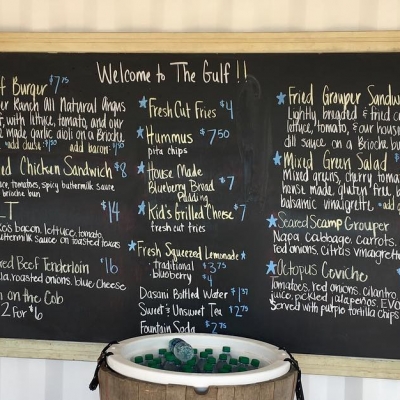 Welcome to The Gulf!!
f Burger $7.75
er Ranch All Natural Angus
f, with lettuce, tomato, and our
made garlic aioli on a Brioche
add bacon:
ed Chicken Sandwich $8
uce, tomatoes, spicy buttermilk sauce
brioche bun
LT $14
kos bacon, lettuce, tomato,
uttermilk sauce on toasted texas
red Beef Tenderloin $16
la, roasted onions, blue cheese
n on the Cob
2 For $6
Fresh Cut Fries $4
Hummus $7.50
pita chips
House Made
Blueberry Bread $7
Pudding
Kid's Grilled Cheese $7
fresh cut fries
Fresh Squeezed Lemonade
traditional $3.75
blueberry $4
Dasani Bottled Water $1.37
Sweet & Unsweet Tea $2.75
Fountain Soda $2.75
Fried Grouper Sandw
Lightly breaded & fried g
lettuce, tomato, & our hous
dill sauce on a Brioche bun
Mixed Green Salad $
Mixed greens, cherry tomat
house made gluten free b
balsamic vinaigrette. add
Seared Scamp Grouper
Napa cabbage, carrots,
red onions, citrus vinaigrett
Octopus Ceviche
Tomatoes, red onions, cilantro,
juice, pickled jalapeños, EVO
Served with purple tortilla chips